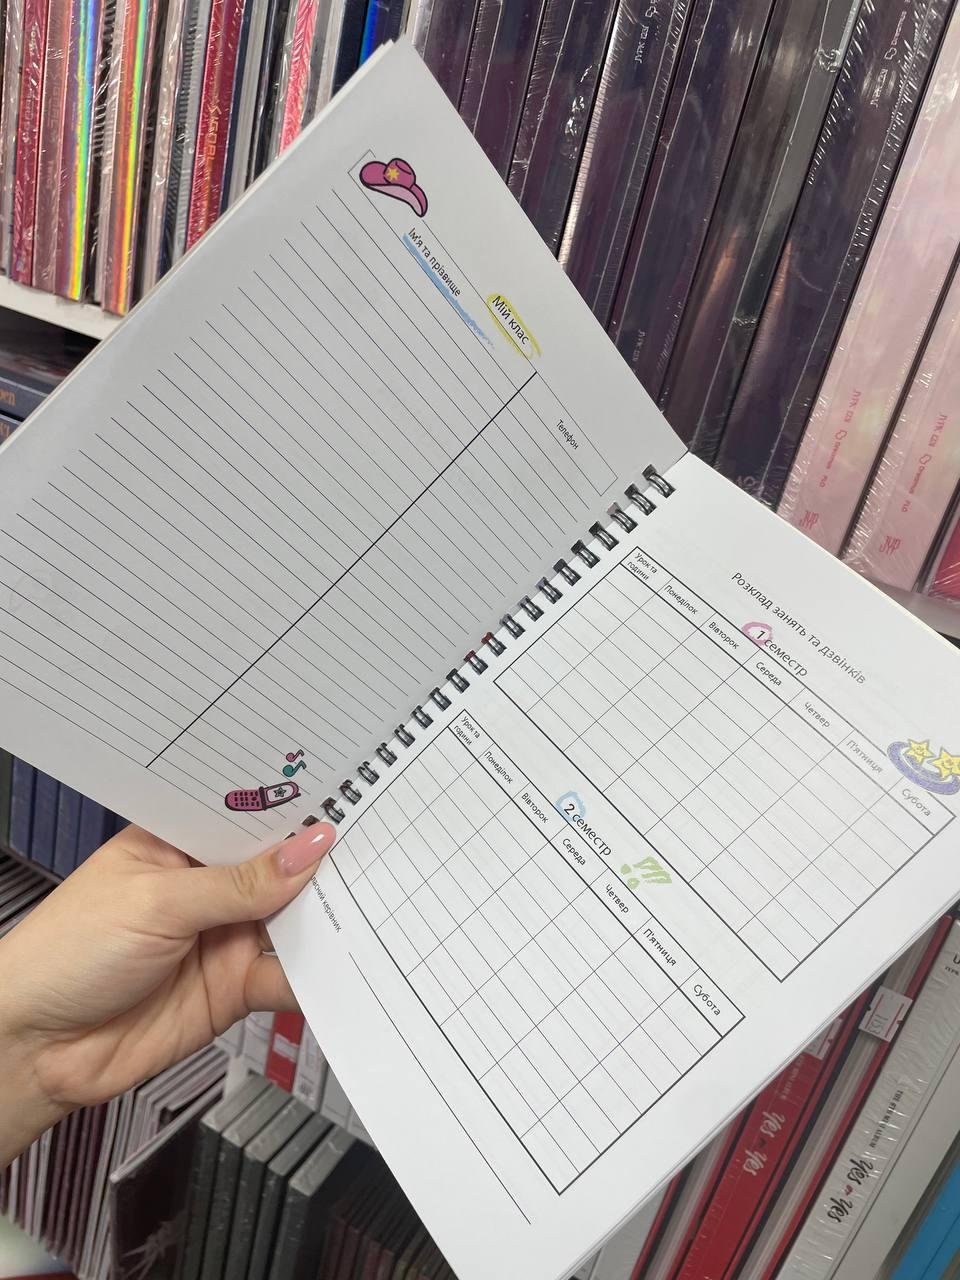 Мій клас
Ім'я та прізвище
Телефон
Розклад занять та дзвінків
1 семестр
Урок та години
Понеділок
Вівторок
Середа
Четвер
П'ятниця
Субота
2 семестр
Урок та години
Понеділок
Вівторок
Середа
Четвер
П'ятниця
Субота
керівник
JYP
JYP
YES or YES
YES or YES
YES or YES